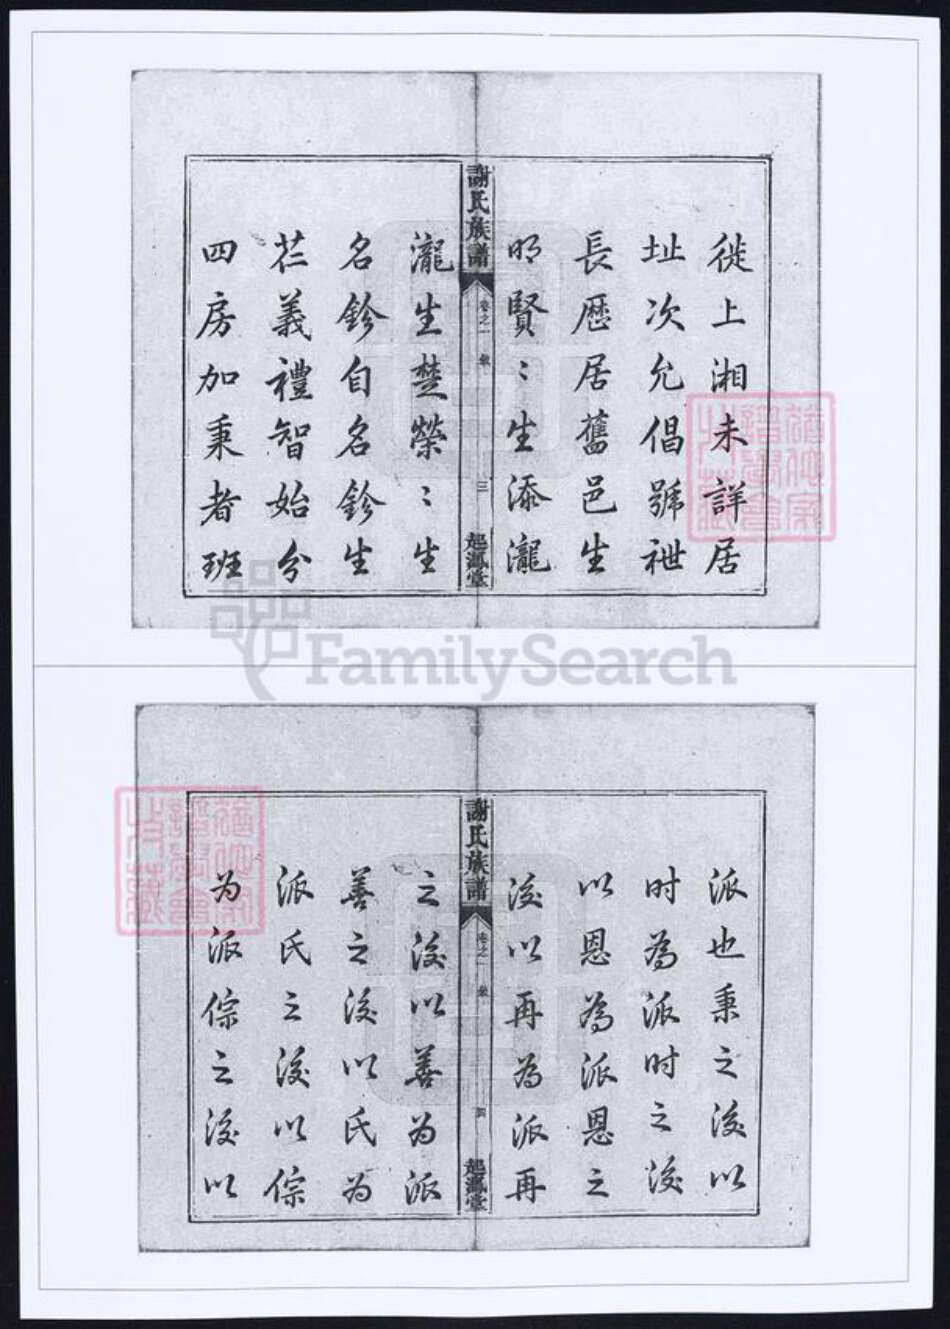 徙上湘未詳居
址次允倡號衪
長歷居舊邑生
明賢〻生添瀧
謝氏族譜
卷之一
三
起鳳堂
瀧生楚榮〻生
名鈐自名鈐生
仁義禮智始分
四房加秉者班
FamilySearch
派也秉之後以
时為派时之後
以恩為派恩之
後以再為派再
謝氏族譜
卷之一
四
起鳳堂
之後以善为派
善之後以氏为
派氏之後以倧
为派倧之後以